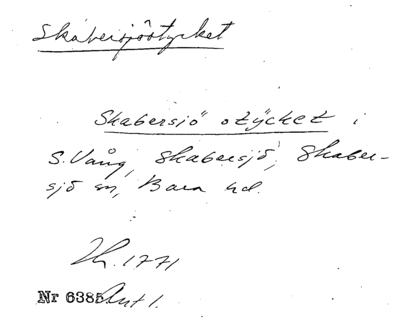 Skabersjöstycket
Skabersjö stycket i
S. Vång, Skabersjö, Skaber-
sjö sn, Bara hd.
1771
Nr 6385 Akt 1.